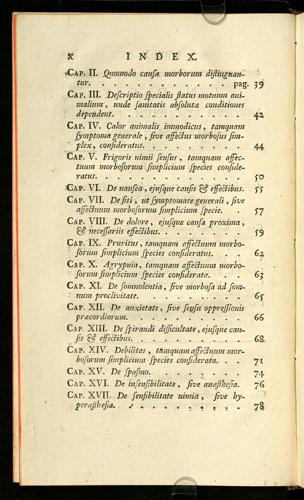 x INDEX.
CAP. II. Quomodo causæ morborum distinguan-
tur. . . . . . . . . . . pag. 39
CAP. III. Descriptio specialis status motuum ani-
malium, unde sanitatis absolutæ conditiones
dependent. . . . . . . . . . 42
CAP. IV. Calor animalis immodicus, tamquam
symptoma generale, sive affectus morbosus sim-
plex, consideratus. . . . . . . . 44
CAP. V. Frigoris nimii sensus, tamquam affec-
tuum morbosorum simplicium species conside-
ratus. . . . . . . . . . . 50
CAP. VI. De nausea, ejusque causis & effectibus. 55
CAP. VII. De siti, ut symptomate generali, sive
affectuum morbosorum simplicium specie. . 57
CAP. VIII. De dolore, ejusque causa proxima,
& necessariis effectibus. . . . . . . 59
CAP. IX. Pruritus, tamquam affectuum morbo-
sorum simplicium species consideratus. . . 62
CAP. X. Agrypnia, tamquam affectuum morbo-
sorum simplicium species considerata. . . 63
CAP. XI. De somnolentia, sive morbosa ad som-
num proclivitate. . . . . . . . . 65
CAP. XII. De anxietate, sive sensu oppressionis
præcordiorum. . . . . . . . . . 66
CAP. XIII. De spirandi difficultate, ejusque cau-
sis & effectibus. . . . . . . . . 68
CAP. XIV. Debilitas, tamquam affectuum mor-
bosorum simplicium species considerata. . . 71
CAP. XV. De spasmo. . . . . . . . 74
CAP. XVI. De insensibilitate, sive anæsthesia. 76
CAP. XVII. De sensibilitate nimia, sive hy-
peræsthesia. . . . . . . . . . 78